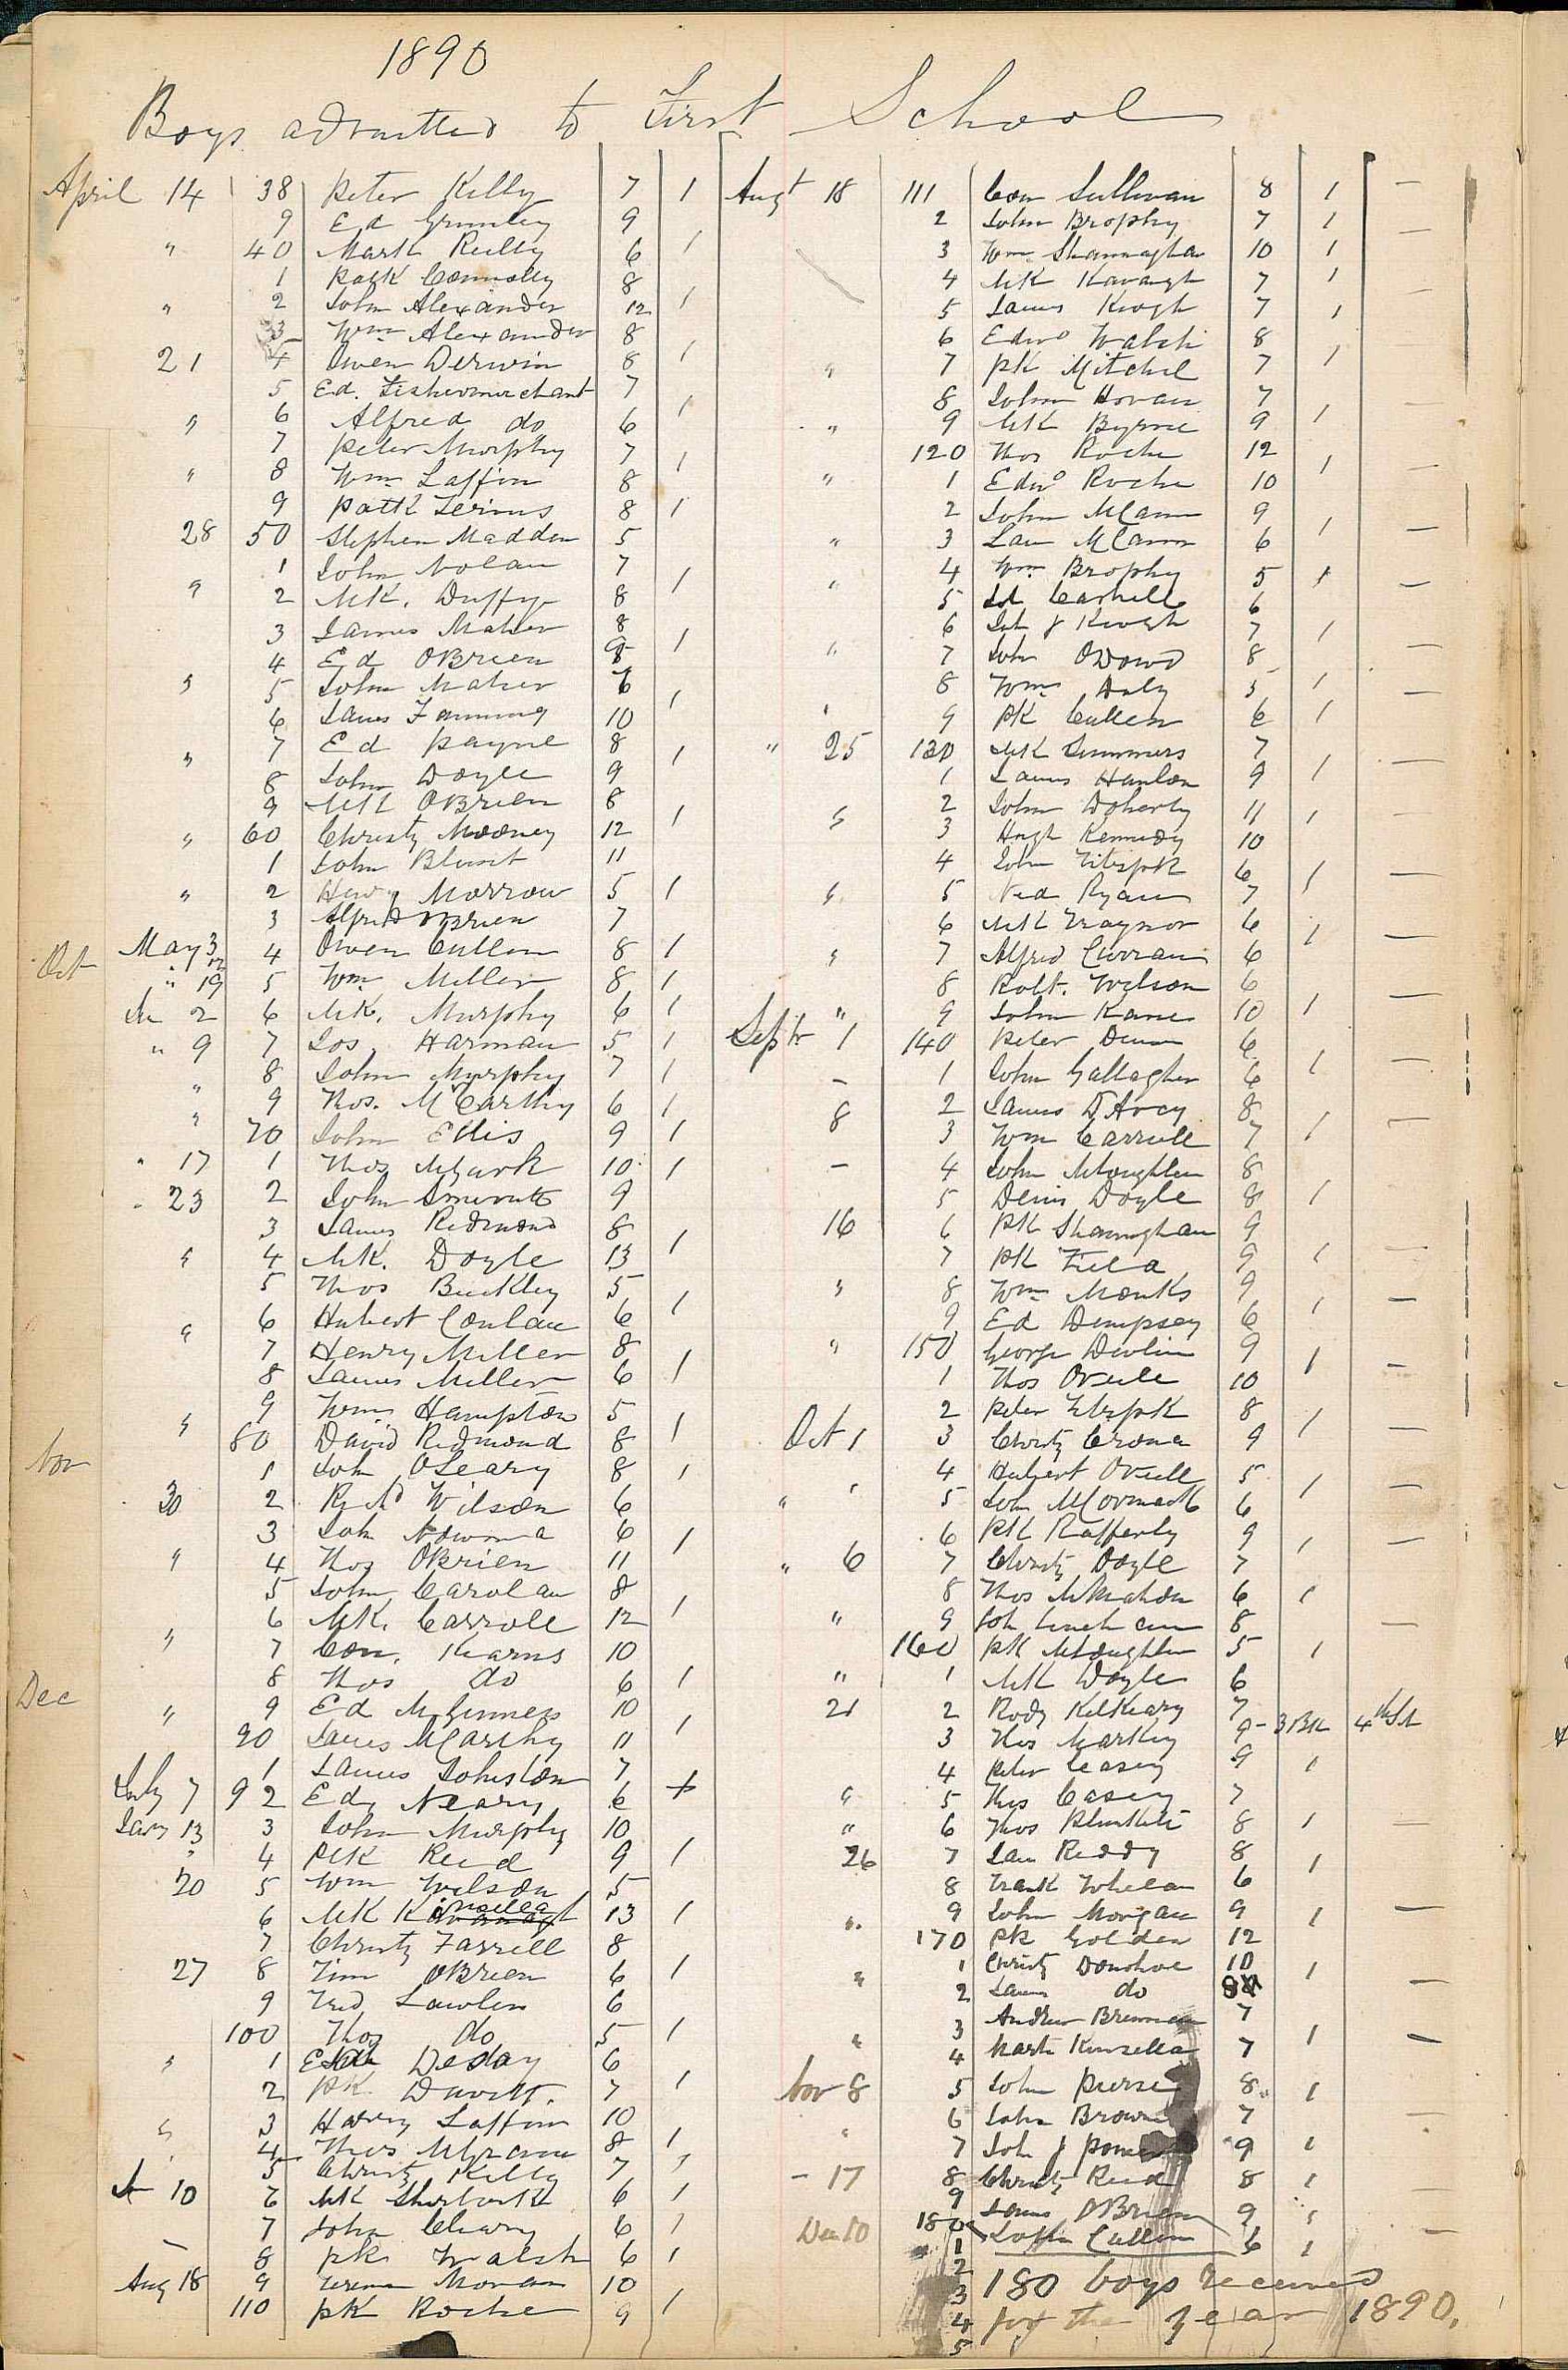 1890
Boys admitted to First School
April 14 38 Peter Kelly 7 1
9 Ed Grimley 9
" 40 Mark Reilly 6 1
1 Patk Connolly 8
" 2 John Alexander 12 1
3 Wm Alexander 8
21 4 Owen Derwin 8 1
5 Ed. Fishermerchant 7
" 6 Alfred do 6 1
7 Peter Murphy 7
" 8 Wm Laffin 8 1
9 Patk 8 1
28 50 Stephen Madden 5
1 John Nolan 7
" 2 MK. Duffy 8 1
3 James Maher 8
4 Ed OBrien 1
" 5 John Maher 6
6 James Fanning 10 1
7 Ed Payne 8
" 8 John Doyle 9 1
9 MK OBrien 8
" 60 Christy Mooney 12 1
1 John Blunt 11
" 2 Henry Morrow 5 1
3 Alfred OBrien 7
Oct May 3 4 Owen Cullen 8 1
" 19 5 Wm Miller 8 1
Ju 2 6 MK. Murphy 6 1
" 9 7 Jos. Harman 5 1
8 John Murphy 7 1
" 9 Thos. McCarthy 6 1
" 70 John Ellis 9 1
" 17 1 Thos 10 1
" 23 2 John 9
3 James Redmond 8 1
" 4 MK. Doyle 13
5 Thos Buckley 5
6 Hubert Conlan 6 1
" 7 Henry Miller 8
8 James Miller 6 1
9 Wm Hampton 5
" 80 David Redmond 8 1
Nov 1 Joh OLeary 8 1
30 2 Richd Wilson 6
3 Joh 6 1
" 4 Thos OBrien 11
5 John Carolan 8
6 MK. Carroll 12 1
" 7 Con. Kearns 10
8 Thos do 6 1
Dec " 9 Ed McGinness 10
90 James McCarthy 11 1
1 James Johnston 7
July 7 92 Edy Neary 6 +
13 3 John Murphy 10
" 4 PK Reid 9 1
20 5 Wm Wilson 5
6 MK Kinsella 13 1
7 Christy Farrell 8
27 8 Tim OBrien 6 1
9 Fred Lawless 6
100 Thos do 5 1
" 1 6
2 PK Davitt. 7 1
" 3 Harry Laffin 10
4 Thos 8 1
5 Christy Kelly 7 1
10 6 MK 6 1
7 John Cleary 6 1
– 8 PK Walsh 6 1
Aug 18 9 Moran 10
110 PK Roche 9 1
Augt 18 111 Con Sullivan 8 1 –
2 John Brophy 7 1 –
3 Wm 10 1 –
4 MK Kavangh 7 1 –
5 James Keogh 7 1 –
6 Edwd Walsh 8
" 7 PK Mitchel 7 1 –
8 John Horan 7
" 9 MK Byrne 9 1 –
120 Thos Roche 12
" 1 Edwd Roche 10 1 –
2 John McCann 9
" 3 Lau McCann 6 1 –
" 4 Wm Brophy 5 1 –
5 6
6 Joh J Keogh 7 1 –
" 7 John ODowd 8
8 Wm Daly 5 1 –
" 9 PK Cullen 6 1 –
" 25 130 MK Simmers 7
1 James Hanlon 9 1 –
2 John Doherty 11 1 –
" 3 Hugh Kennedy 10
4 John Fitzpk 6 1 –
" 5 Ned Ryan 7
6 MK Traynor 6 1 –
" 7 Alfred Curran 6
8 Robt. Wilson 6
" 9 John Kane 10 1 –
Septr 1 140 Peter Dunn 6
– 1 John Gallagher 6 1 –
8 2 James D'Arcy 8
3 Wm Carroll 7 1 –
– 4 John McLoughlin 8
5 Denis Doyle 8 1 –
16 6 PK 9
7 PK 9 1 –
" 8 Wm Monks 9
9 Ed Dempsey 6 1 –
" 150 George Devlin 9
1 Thos ONeill 10 1 –
2 Peter Fitzpk 8
Oct 1 3 Christy 9 1 –
4 Hubert ONeill 5
" ' 5 John McCormack 6 1 –
6 PK Rafferty 9
" 6 7 Christy Doyle 7 1 –
8 Thos McMahon 6 1
" 9 Joh 8 –
160 PK McLoughlin 5 1
" 1 MK Doyle 6
21 2 Rody 7
3 Thos Markey 9 – 3 BK 4th St
4 Peter Casey 9 1
" 5 Thos Casey 7
" 6 Thos Plunkett 8 1 –
26 7 Lau Reddy 8
8 Frank Whelan 6 1 –
". 9 John Morgan 9 1
170 PK Golden 12 –
" 1 Christy Donohoe 10 1
2 James do –
3 Andrew Brennan 7
" 4 Kinsella 7 1 –
Nov 8 5 John Pierse 8 1
6 John Brown 7 –
" 7 Joh J Power 9 1
– 17 8 Christy Reid 8 1 –
9 James OBrien 9
Dec 10 180 Cullen 6 1 –
1
2
3 180 boys received
4 for the year 1890.
5